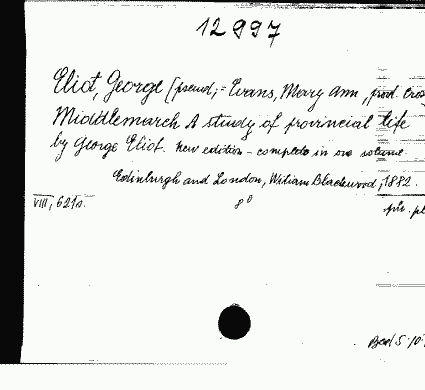 12997
Eliot, George [pseud; = Evans, Mary Ann, prod. Cros
Middlemarch A study of provincial life
by George Eliot. New edition - complete in one volume.
Edinburgh and London, William Blackwood, 1882.
VIII, 621 s. 8°